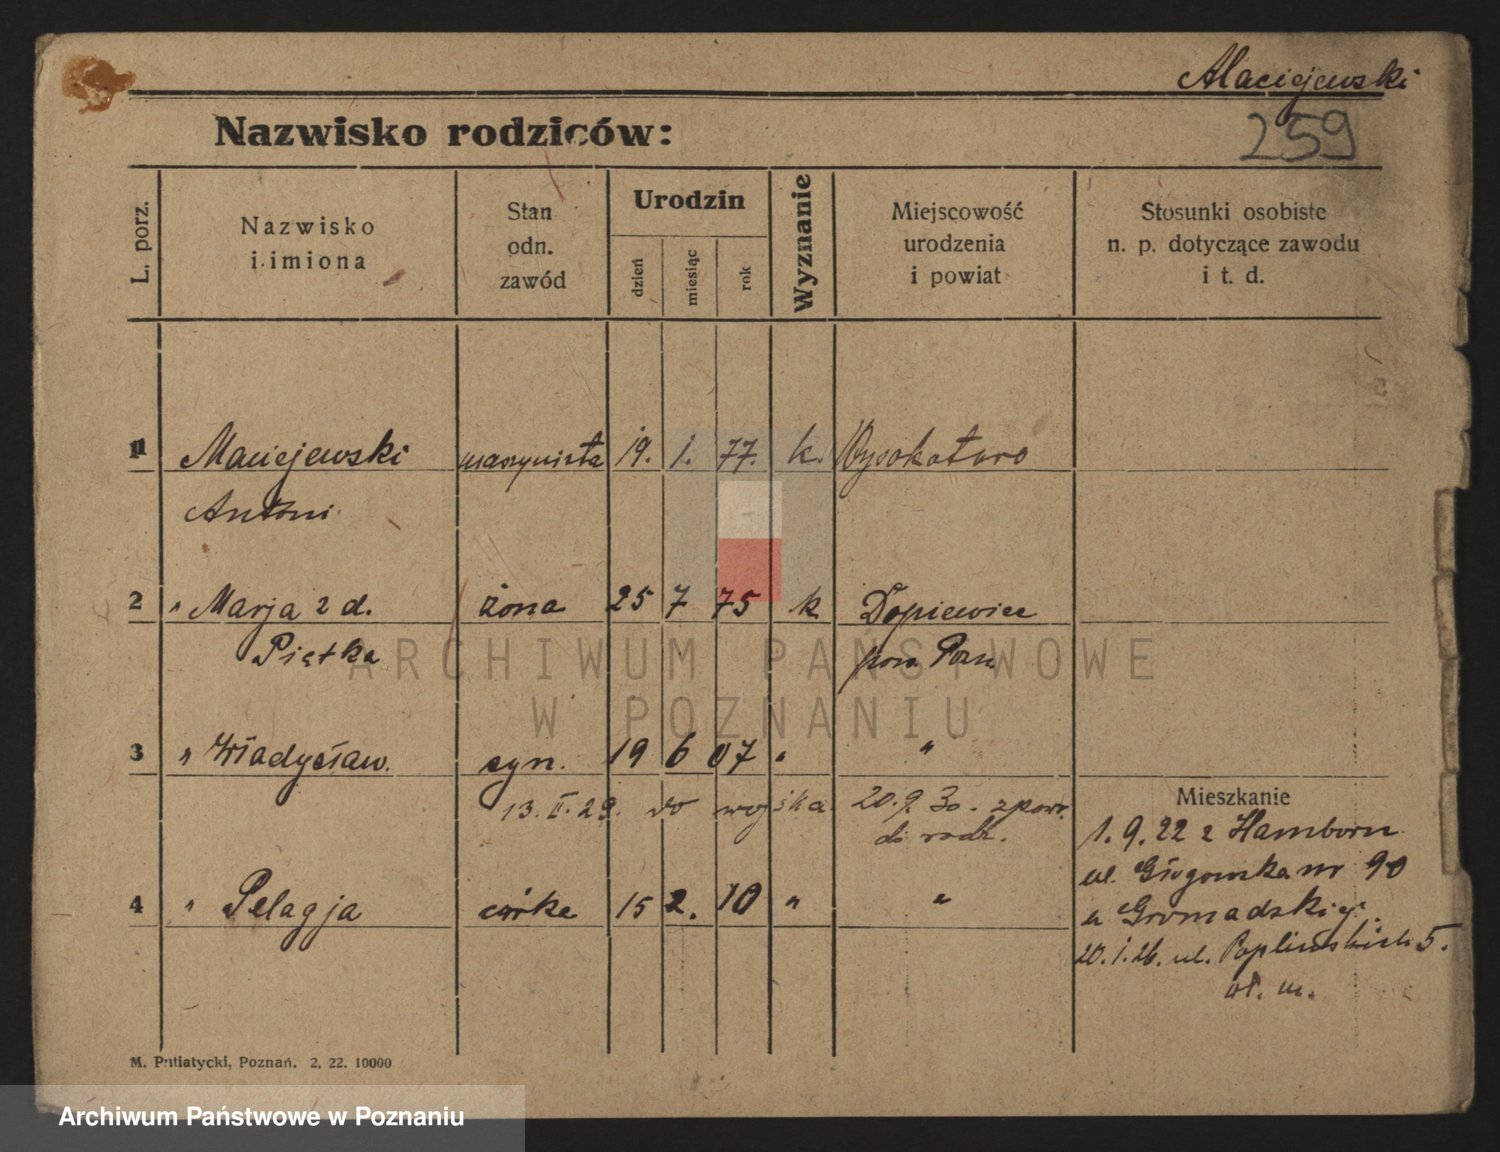 Maciejewski
259
Nazwisko rodziców:
L. porz.
Nazwisko
i imiona
Stan
odn.
zawód
Urodzin
dzień
miesiąc
rok
Wyznanie
Miejscowość
urodzenia
i powiat
Stosunki osobiste
n. p. dotyczące zawodu
i t. d.
1 Maciejewski maszynista 19. 1. 77. k. Wysokotoro
Antoni
2 " Marja z d. żona 25 7 75 k Dopiewiec
Piątka pow. Pozn.
3 " Władysław. syn. 19 6 07 " "
13. II. 29. do wojska 20.9.30. zpowr.
do rodz.
Mieszkanie
1. 9. 22 z Hamborn
ul. Głogowska nr 90
u Gromadskiej.
20.1.26. ul. Poplińskich 5.
wł. m.
4 " Pelagja córka 15 2. 10 " "
M. Putiatycki, Poznań. 2. 22. 10000
ARCHIWUM PAŃSTWOWE
W POZNANIU
Archiwum Państwowe w Poznaniu